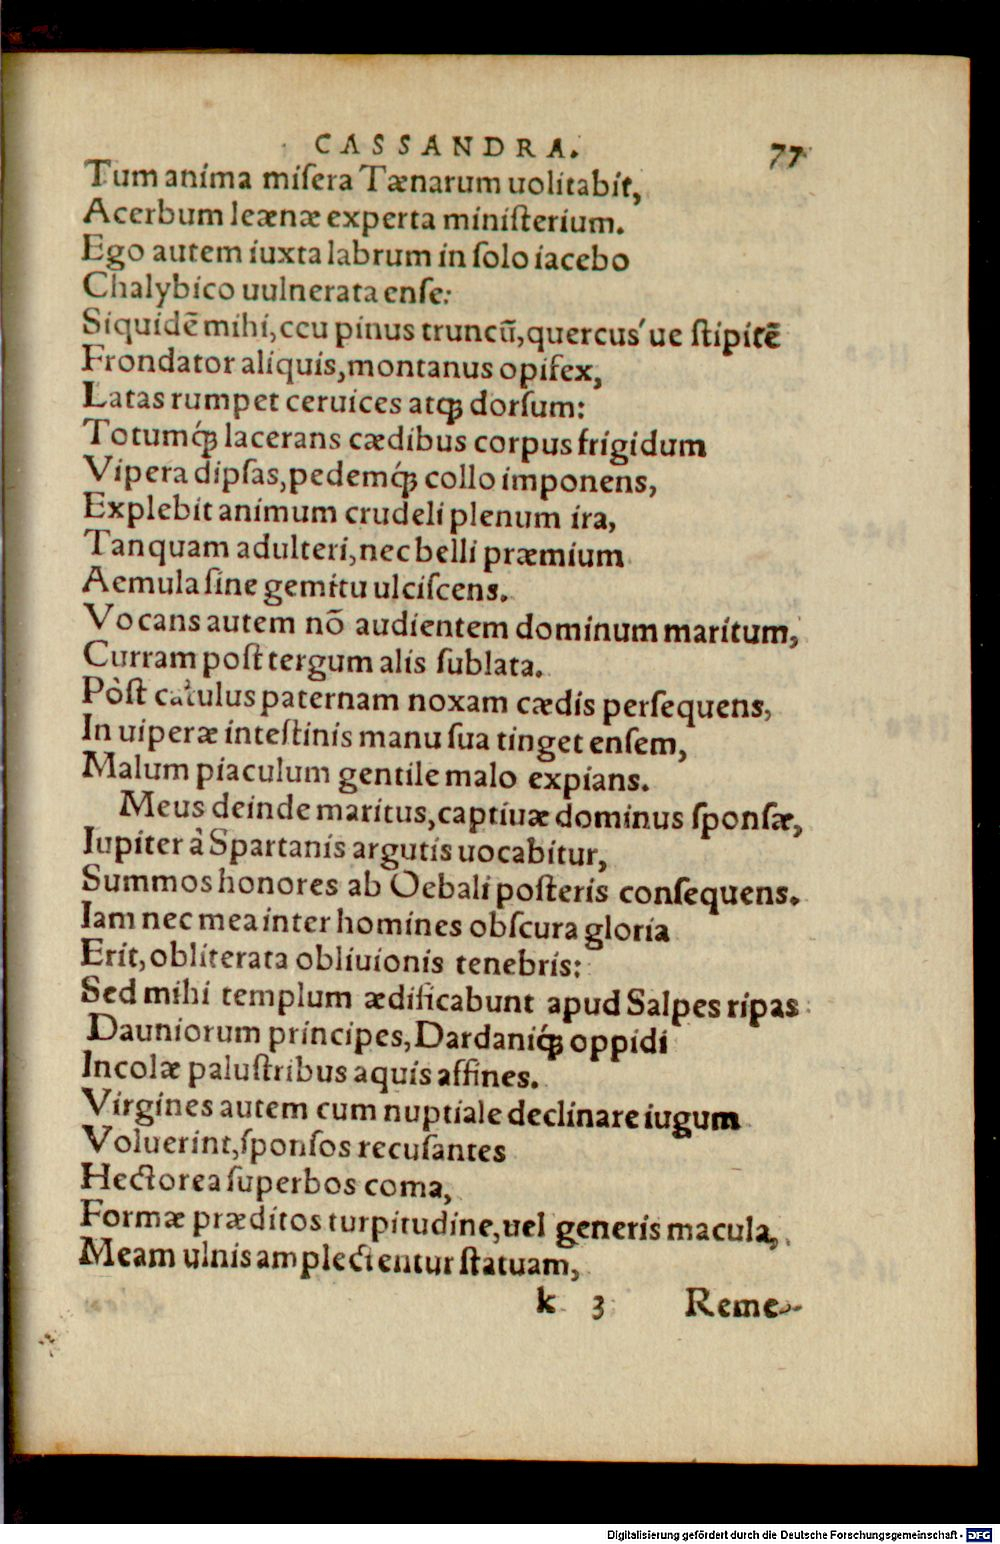 CASSANDRA. 77
Tum anima misera Tænarum uolitabit,
Acerbum leænæ experta ministerium.
Ego autem iuxta labrum in solo iacebo
Chalybico uulnerata ense:
Siquidē mihi, ceu pinus truncū, quercus´ue stipitē
Frondator aliquis, montanus opifex,
Latas rumpet ceruices atq; dorsum:
Totumq́; lacerans cædibus corpus frigidum
Vipera dipsas, pedemq́; collo imponens,
Explebit animum crudeli plenum ira,
Tanquam adulteri, nec belli præmium
Aemula sine gemitu ulciscens.
Vocans autem nō audientem dominum maritum,
Curram post tergum alis sublata.
Pòst catulus paternam noxam cædis persequens,
In uiperæ intestinis manu sua tinget ensem,
Malum piaculum gentile malo expians.
Meus deinde maritus, captiuæ dominus sponsæ,
Iupiter à Spartanis argutis uocabitur,
Summos honores ab Oebali posteris consequens.
Iam nec mea inter homines obscura gloria
Erit, obliterata obliuionis tenebris:
Sed mihi templum ædificabunt apud Salpes ripas
Dauniorum principes, Dardaniq́; oppidi
Incolæ palustribus aquis affines.
Virgines autem cum nuptiale declinare iugum
Voluerint, sponsos recusantes
Hectorea superbos coma,
Formæ præditos turpitudine, uel generis macula,
Meam ulnis amplectentur statuam,
k 3 Reme-
Digitalisierung gefördert durch die Deutsche Forschungsgemeinschaft - DFG